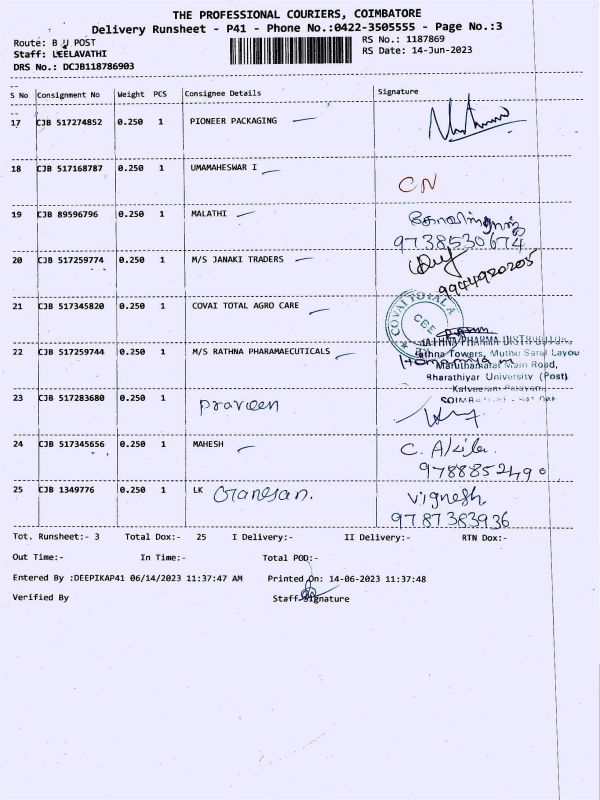 THE PROFESSIONAL COURIERS, COIMBATORE
Delivery Runsheet - P41 - Phone No.:0422-3505555 - Page No.:3
Route: B U POST
RS No.: 1187869
Staff: LEELAVATHI
RS Date: 14-Jun-2023
DRS No.: DCJB118786903
S No Consignment No Weight PCS Consignee Details Signature
17 CJB 517274852 0.250 1 PIONEER PACKAGING
18 CJB 517168787 0.250 1 UMAMAHESWAR I
CN
19 CJB 89596796 0.250 1 MALATHI
9738530674
20 CJB 517259774 0.250 1 M/S JANAKI TRADERS
9944920205
21 CJB 517345820 0.250 1 COVAI TOTAL AGRO CARE
COVAI TOTAL A
CBE
22 CJB 517259744 0.250 1 M/S RATHNA PHARAMAECUTICALS
RATHNA PHARMA DISTRIBUTOR
Rathna Towers, Muthu Saral Layou
Maruthamalai Main Road,
Bharathiyar University (Post)
Kalveeram Palayam
23 CJB 517283680 0.250 1 Praveen
24 CJB 517345656 0.250 1 MAHESH C. Akila
9788852490
25 CJB 1349776 0.250 1 LK Ganesan. Vignesh
9787383936
Tot. Runsheet:- 3 Total Dox:- 25 I Delivery:- II Delivery:- RTN Dox:-
Out Time:- In Time:- Total POD:-
Entered By :DEEPIKAP41 06/14/2023 11:37:47 AM Printed On: 14-06-2023 11:37:48
Verified By Staff Signature